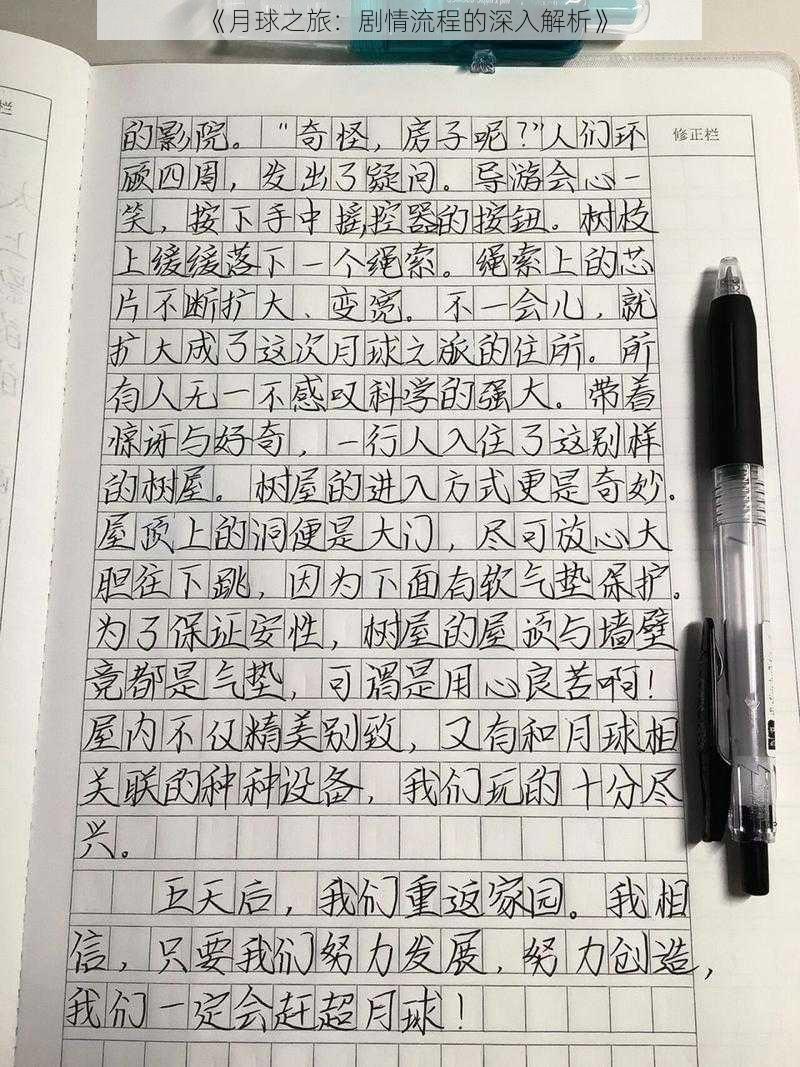 《月球之旅：剧情流程的深入解析》
修正栏
的影院。“奇怪，房子呢？”人们环
顾四周，发出了疑问。导游会心一
笑，按下手中摇控器的按钮。树枝
上缓缓落下一个绳索。绳索上的芯
片不断扩大、变宽。不一会儿，就
扩大成了这次月球之旅的住所。所
有人无一不感叹科学的强大。带着
惊讶与好奇，一行人入住了这别样
的树屋。树屋的进入方式更是奇妙。
屋顶上的洞便是大门，尽可放心大
胆往下跳，因为下面有软气垫保护。
为了保证安性，树屋的屋顶与墙壁
竟都是气垫，可谓是用心良苦啊！
屋内不仅精美别致，又有和月球相
关联的种种设备，我们玩的十分尽
兴。
五天后，我们重返家园。我相
信，只要我们努力发展，努力创造，
我们一定会赶超月球！